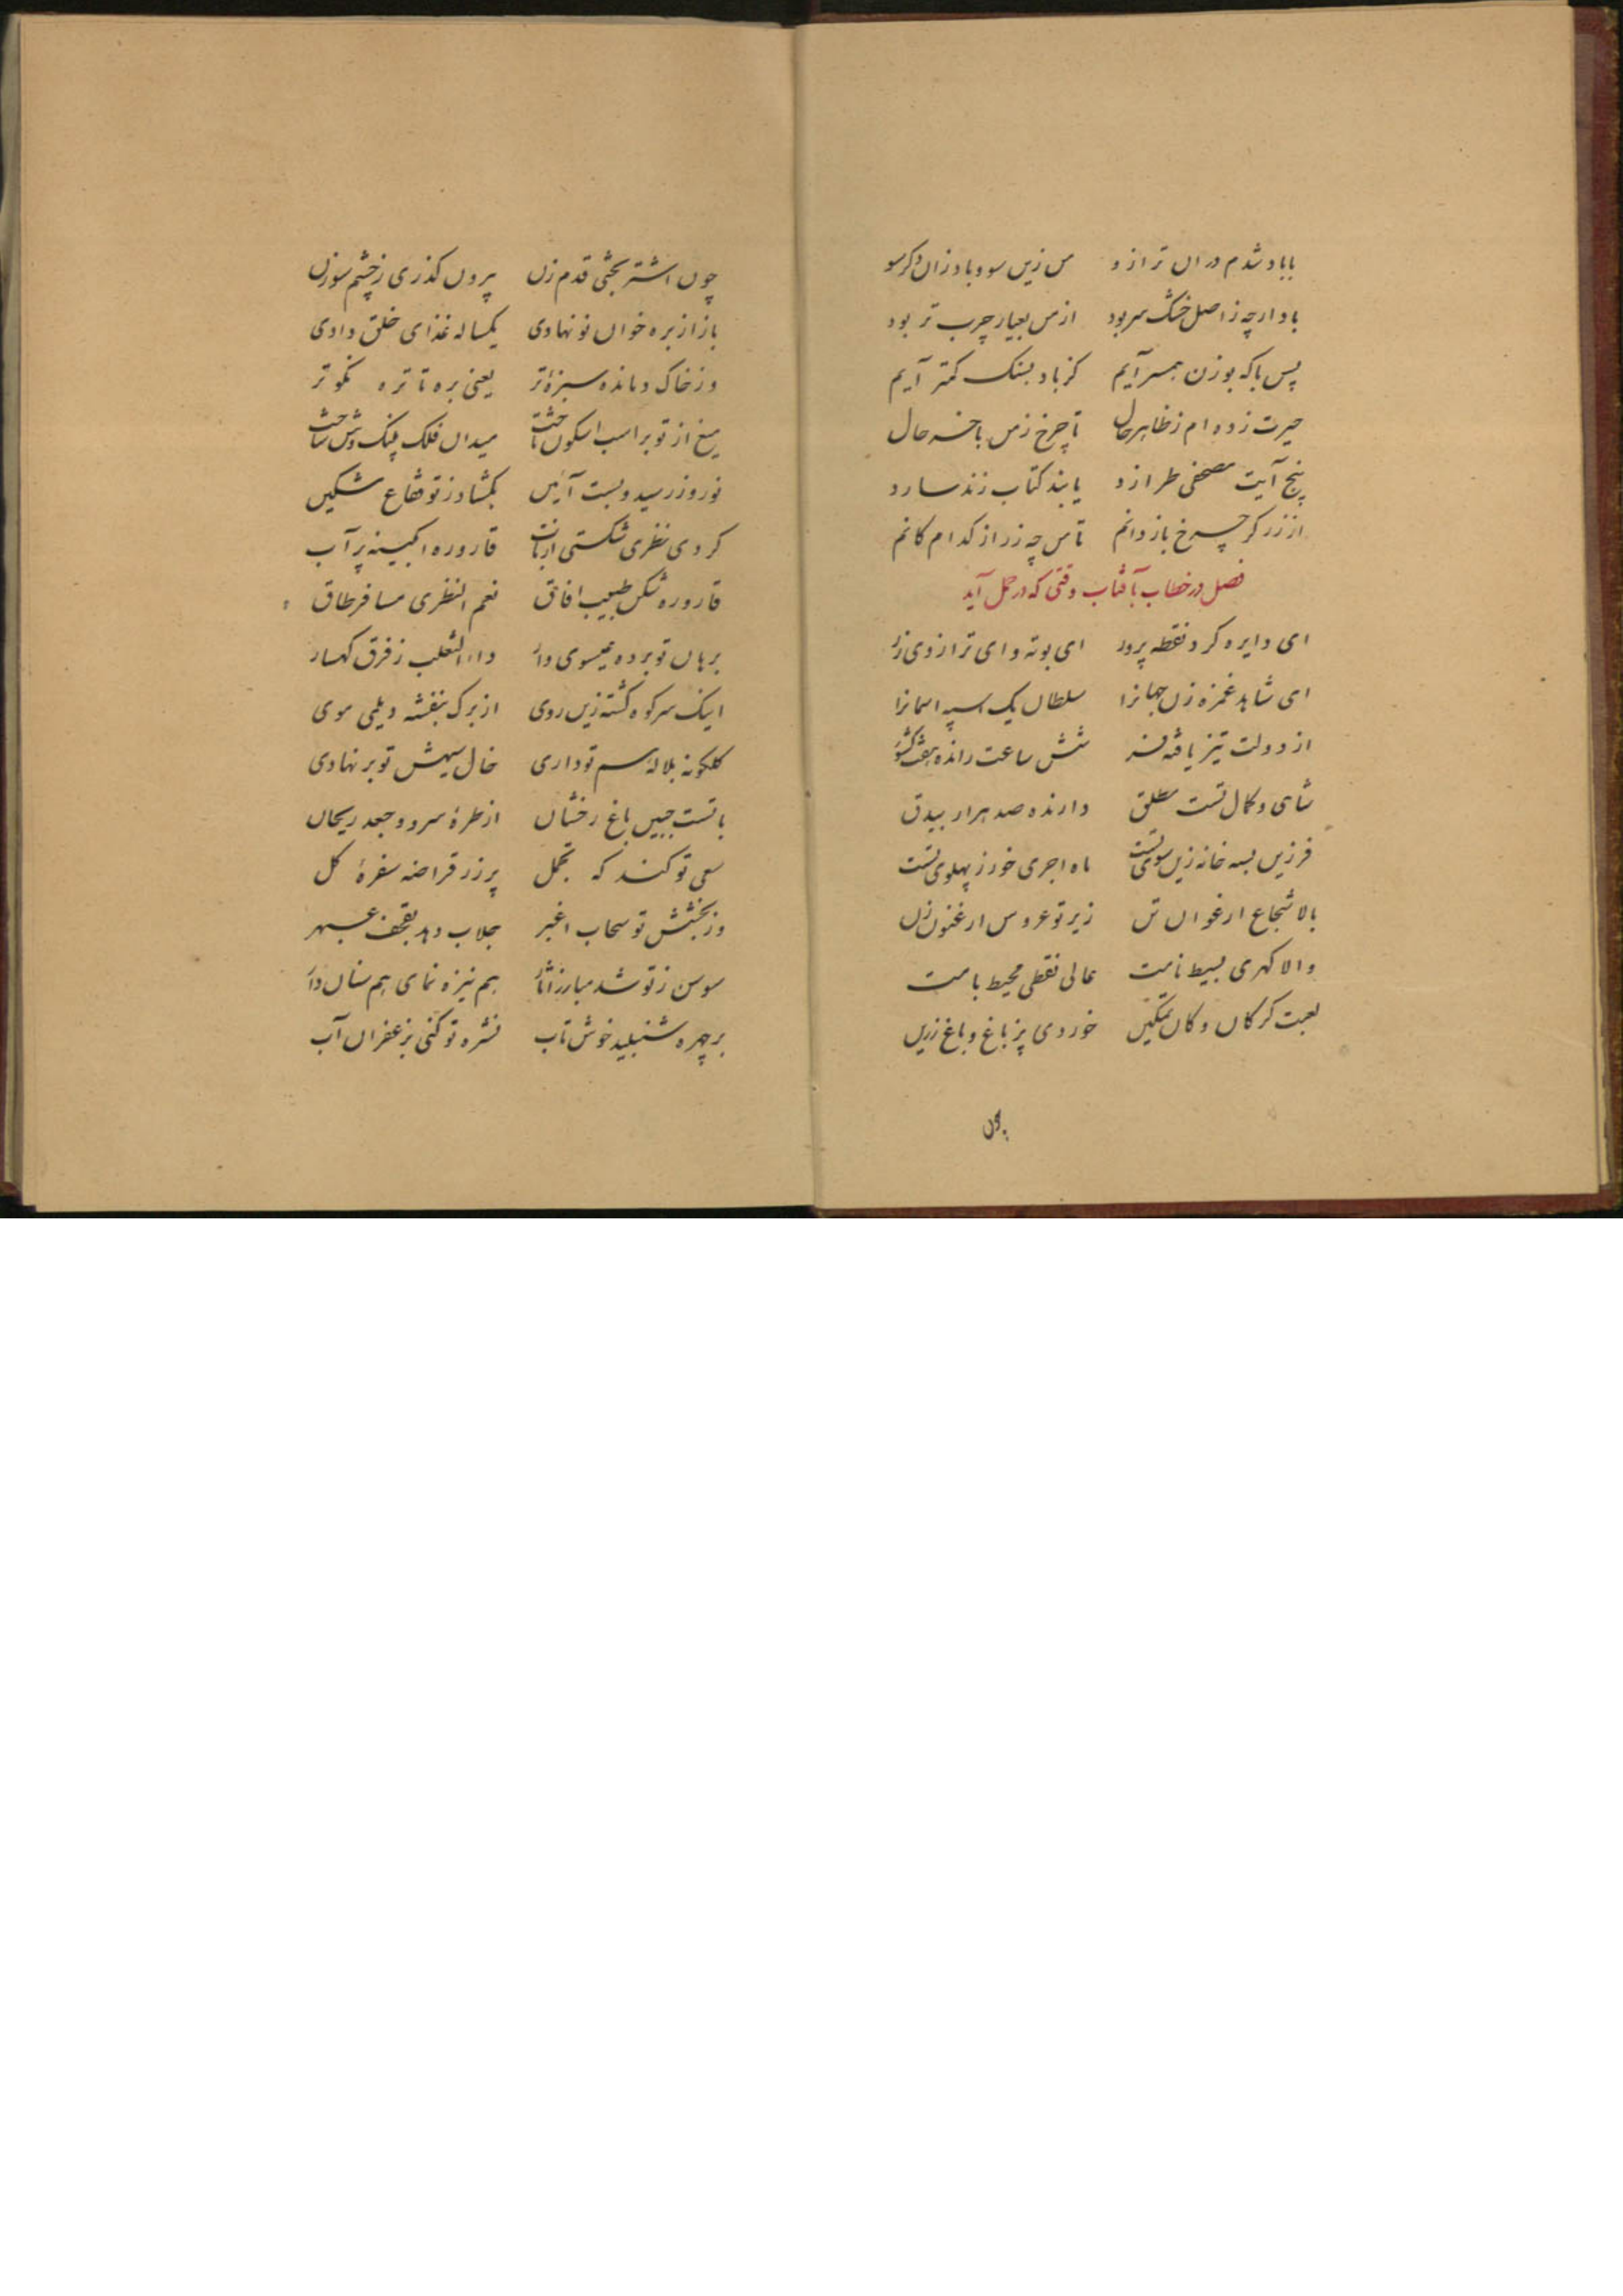 باباد شدم دران ترازو من زین سو و باد زان دگر سو
باد ارچه ز اصل خشک سر بود از من بعیار چرب تر بود
پس با که بوزن همسر آیم کز باد بسنک کمتر آیم
حیرت زده ام ز ظاهر حال تا چرخ ز من باخر حال
پنج آیت مصحفی طرازد یا بند کتاب زند سازد
از زرکر چرخ باز دانم تا من چه زر از کدام کانم
فصل در خطاب بآفتاب وقتی که در حمل آید
ای دایره کرد نقطه پرور ای بوته و ای ترازوی زر
ای شاهد غمزه زن جهانرا سلطان یک اسپه اسمانرا
از دولت تیز یافته شش ساعت رانده هفت کشور
شاهی و کمال تست مطلق دارنده صد هزار بیدق
فرزین بسه خانه زین سوی تست ماه اجری خور ز پهلوی تست
بالا شجاع ارغوان تن زیر تو عروس ارغنون زن
والا کهری بسیط نامت عالی نقطی محیط بامت
لعبت کر کان و کان تمکین خوردی پز باغ و باغ زرین
چون
چون اشتر بختی قدم زن بیرون کذری ز چشم سوزن
باز از بره خوان نو نهادی یکساله غذای خلق دادی
وز خاک دمانده سبزۀ تر یعنی بره تا تره نکو تر
میغ از تو بر اسب اسکون تاخت میدان فلک پلنک وش ساخت
نوروز رسید و بست آئین بکشاد ز تو فقاع مشکین
کردی نظری شکستی از تاب قاروره ابکینه پر آب
قاروره شکن طبیب افاق نعم النظری مسافر طاق
برهان تو برده عیسوی وار داء الثعلب ز فرق کهسار
اینک سر کوه کشته زین روی از برک بنفشه دیلمی موی
کلکونه بلاله سم تو داری خال سیهش تو بر نهادی
با تست جبین باغ رخشان از طرۀ سرو و جعد ریحان
سعی تو کند که تجمل پر زر قراضه سفرۀ کل
وز بخشش تو سحاب اغبر جلاب دهد بقحف عبهر
سوسن ز تو شد مبارز اثار هم نیزه نمای هم سنان دار
بر چهره شنبلید خوش تاب نشره تو کنی بزعفران آب